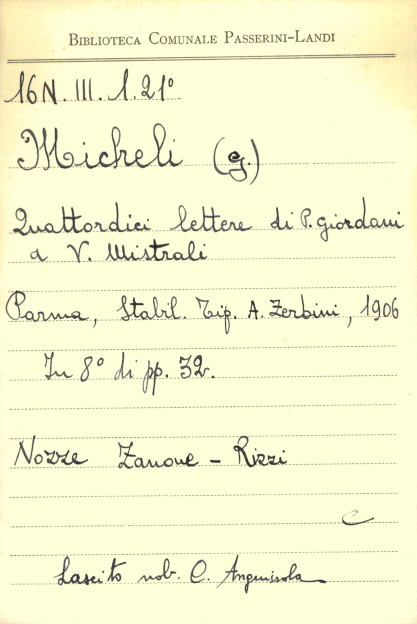 BIBLIOTECA COMUNALE PASSERINI-LANDI
16N. III. 1. 21°
Micheli (G.)
Quattordici lettere di P. Giordani
a V. Mistrali
Parma, Stabil. Tip. A. Zerbini, 1906
In 8° di pp. 32.
Nozze Zanone - Rizzi
C
Lascito nob. C. Anguissola